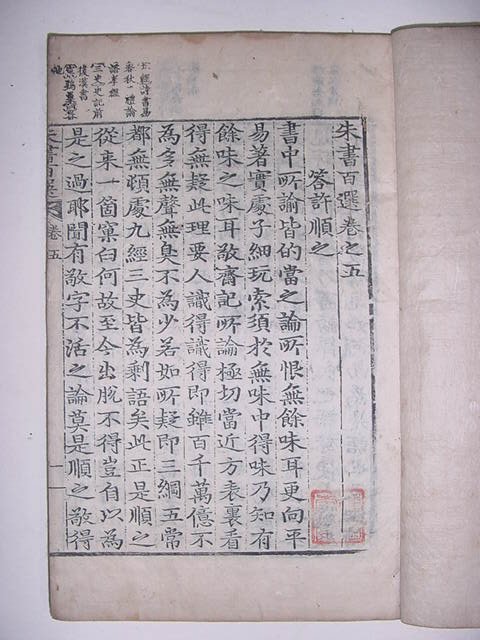 朱書百選卷之五
答許順之
書中所諭皆的當之論所恨無餘味耳更向平
易著實處子細玩索須於無味中得味乃知有
餘味之味耳敬齋記所論極切當近方表裏看
得無疑此理要人識得識得即雖百千萬億不
為多無聲無臭不為少若如所疑即三綱五常
都無頓處九經三史皆為剩語矣此正是順之
從來一箇窠臼何故至今出脫不得豈自以為
是之過耶聞有敬字不活之論莫是順之敬得
五經詩書易
春秋禮論
語孝經
三史史記前
後漢書
朱書百選 卷五
一